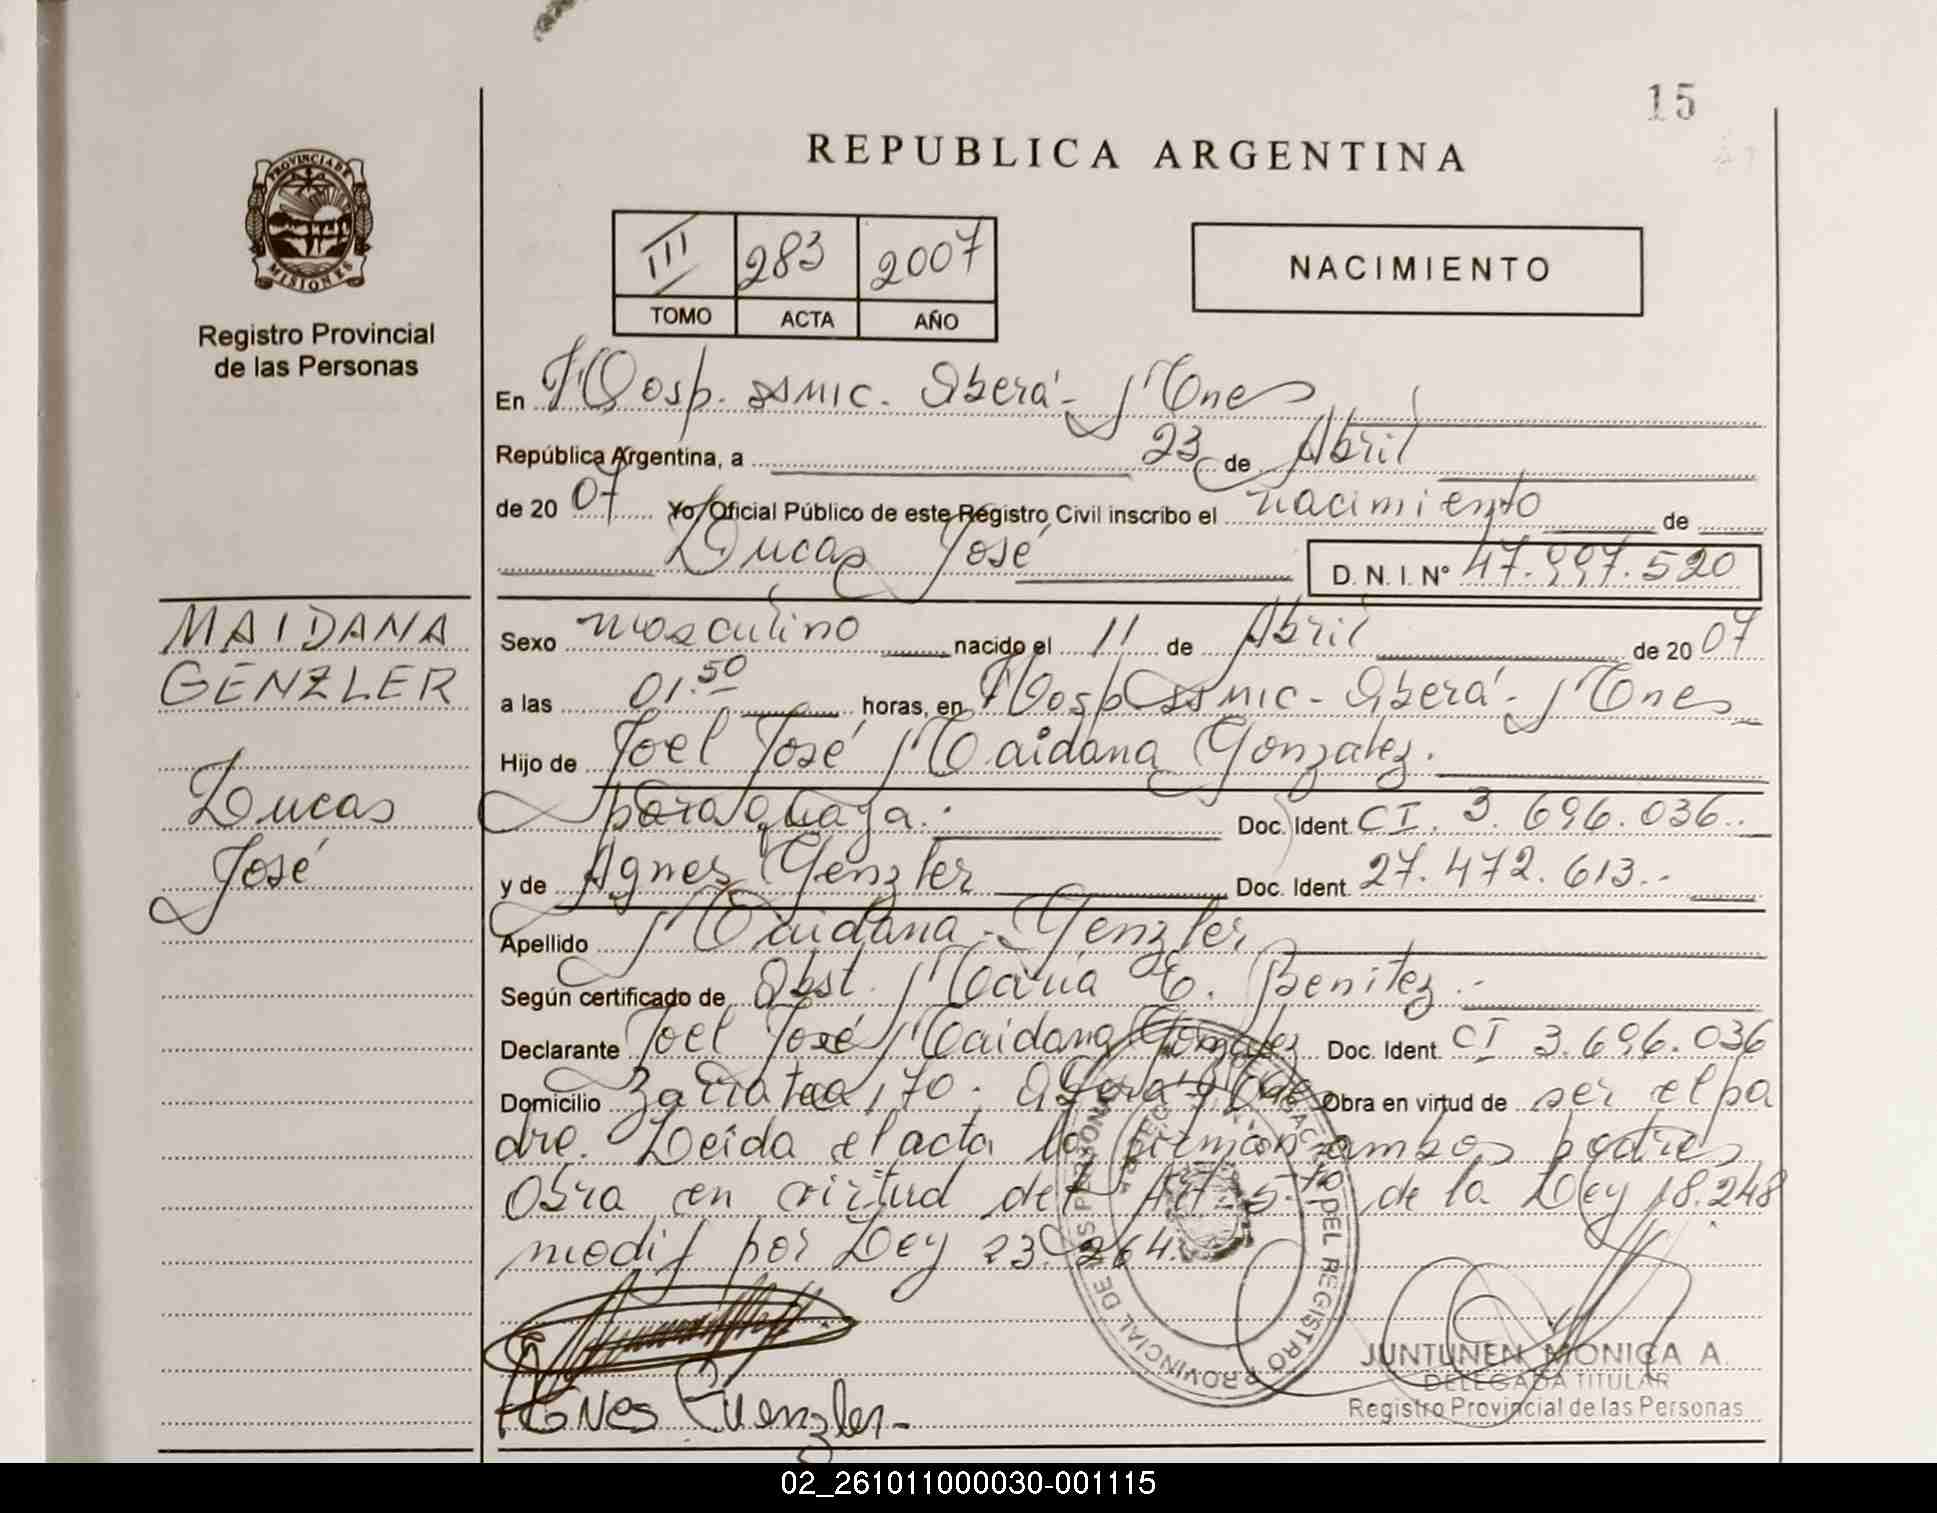 15
REPUBLICA ARGENTINA
PROVINCIA DE MISIONES
Registro Provincial
de las Personas
III 283 2007
TOMO ACTA AÑO
NACIMIENTO
En Hosp. ssmic. Oberá - Mnes
República Argentina, a 23 de Abril
de 20 07 Yo Oficial Público de este Registro Civil inscribo el nacimiento de
Lucas José D. N. I. Nº 47.997.520
MAIDANA
GENZLER
Lucas
José
Sexo masculino nacido el 11 de Abril de 20 07
a las 01.50 horas, en Hosp ssmic - Oberá - Mnes
Hijo de Joel José Maidana Gonzalez.
paraguaya. Doc. Ident. CI. 3.696.036..
y de Agnes Genzler Doc. Ident. 27.472.613..
Apellido Maidana - Genzler
Según certificado de Obst. María E. Benitez.-
Declarante Joel José Maidana Gonzalez Doc. Ident. CI 3.696.036
Domicilio 170. Oberá Obra en virtud de ser el pa
dre. Leída el acta la firman ambos padres
Obra en virtud del Art 5to de la Ley 18.248
modif por Ley 23.264.
DELEGACION DEL REGISTRO PROVINCIAL DE LAS PERSONAS
Agnes Guenzler-
JUNTUNEN MONICA A.
DELEGADA TITULAR
Registro Provincial de las Personas
02_261011000030-001115